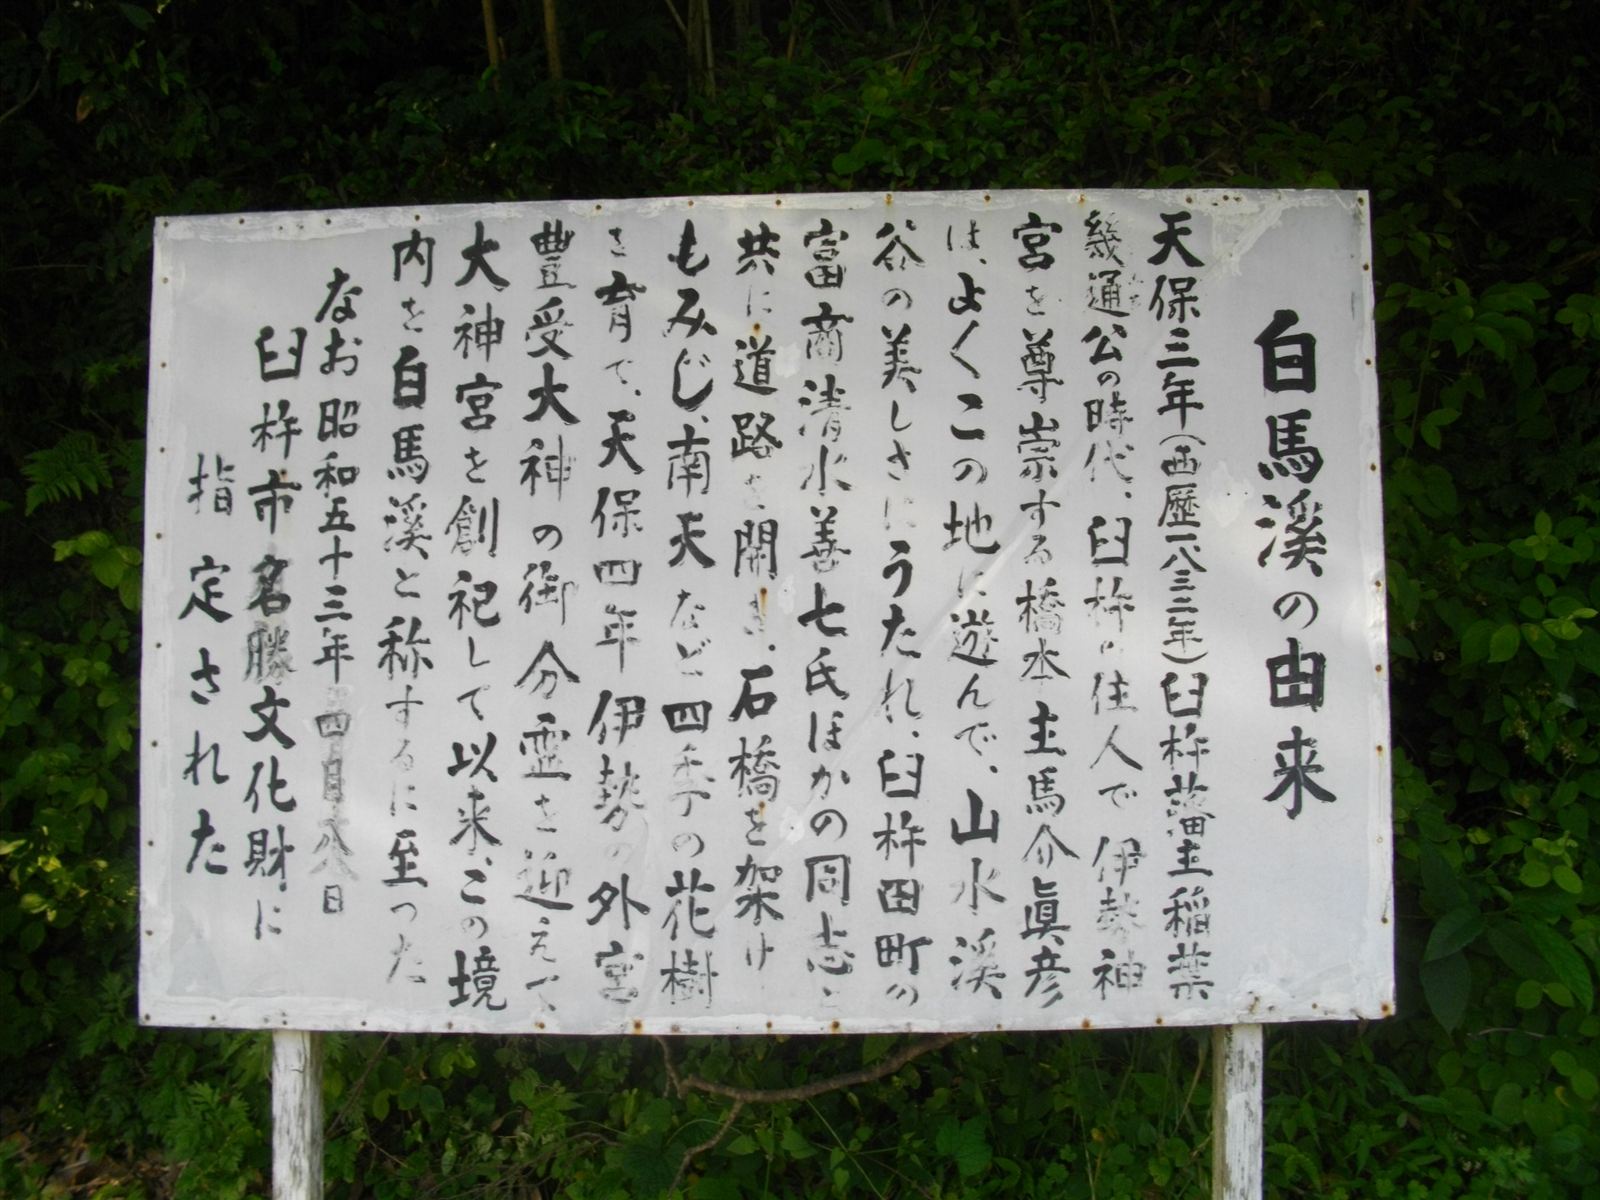 白馬溪の由来
天保三年(西歴一八三二年)臼杵藩主稲葉
幾通公の時代、臼杵の住人で伊勢神
宮を尊崇する橋本主馬介眞彦
は、よくこの地に遊んで、山水溪
谷の美しさにうたれ、臼杵田町の
富商清水善七氏ほかの同志と
共に道路を開き、石橋を架け
もみじ、南天など四季の花樹
を育て、天保四年伊勢の外宮
豊受大神の御分霊を迎えて、
大神宮を創祀して以来、この境
内を白馬溪と称するに至った
なお昭和五十三年四月八日
臼杵市名勝文化財に
指定された